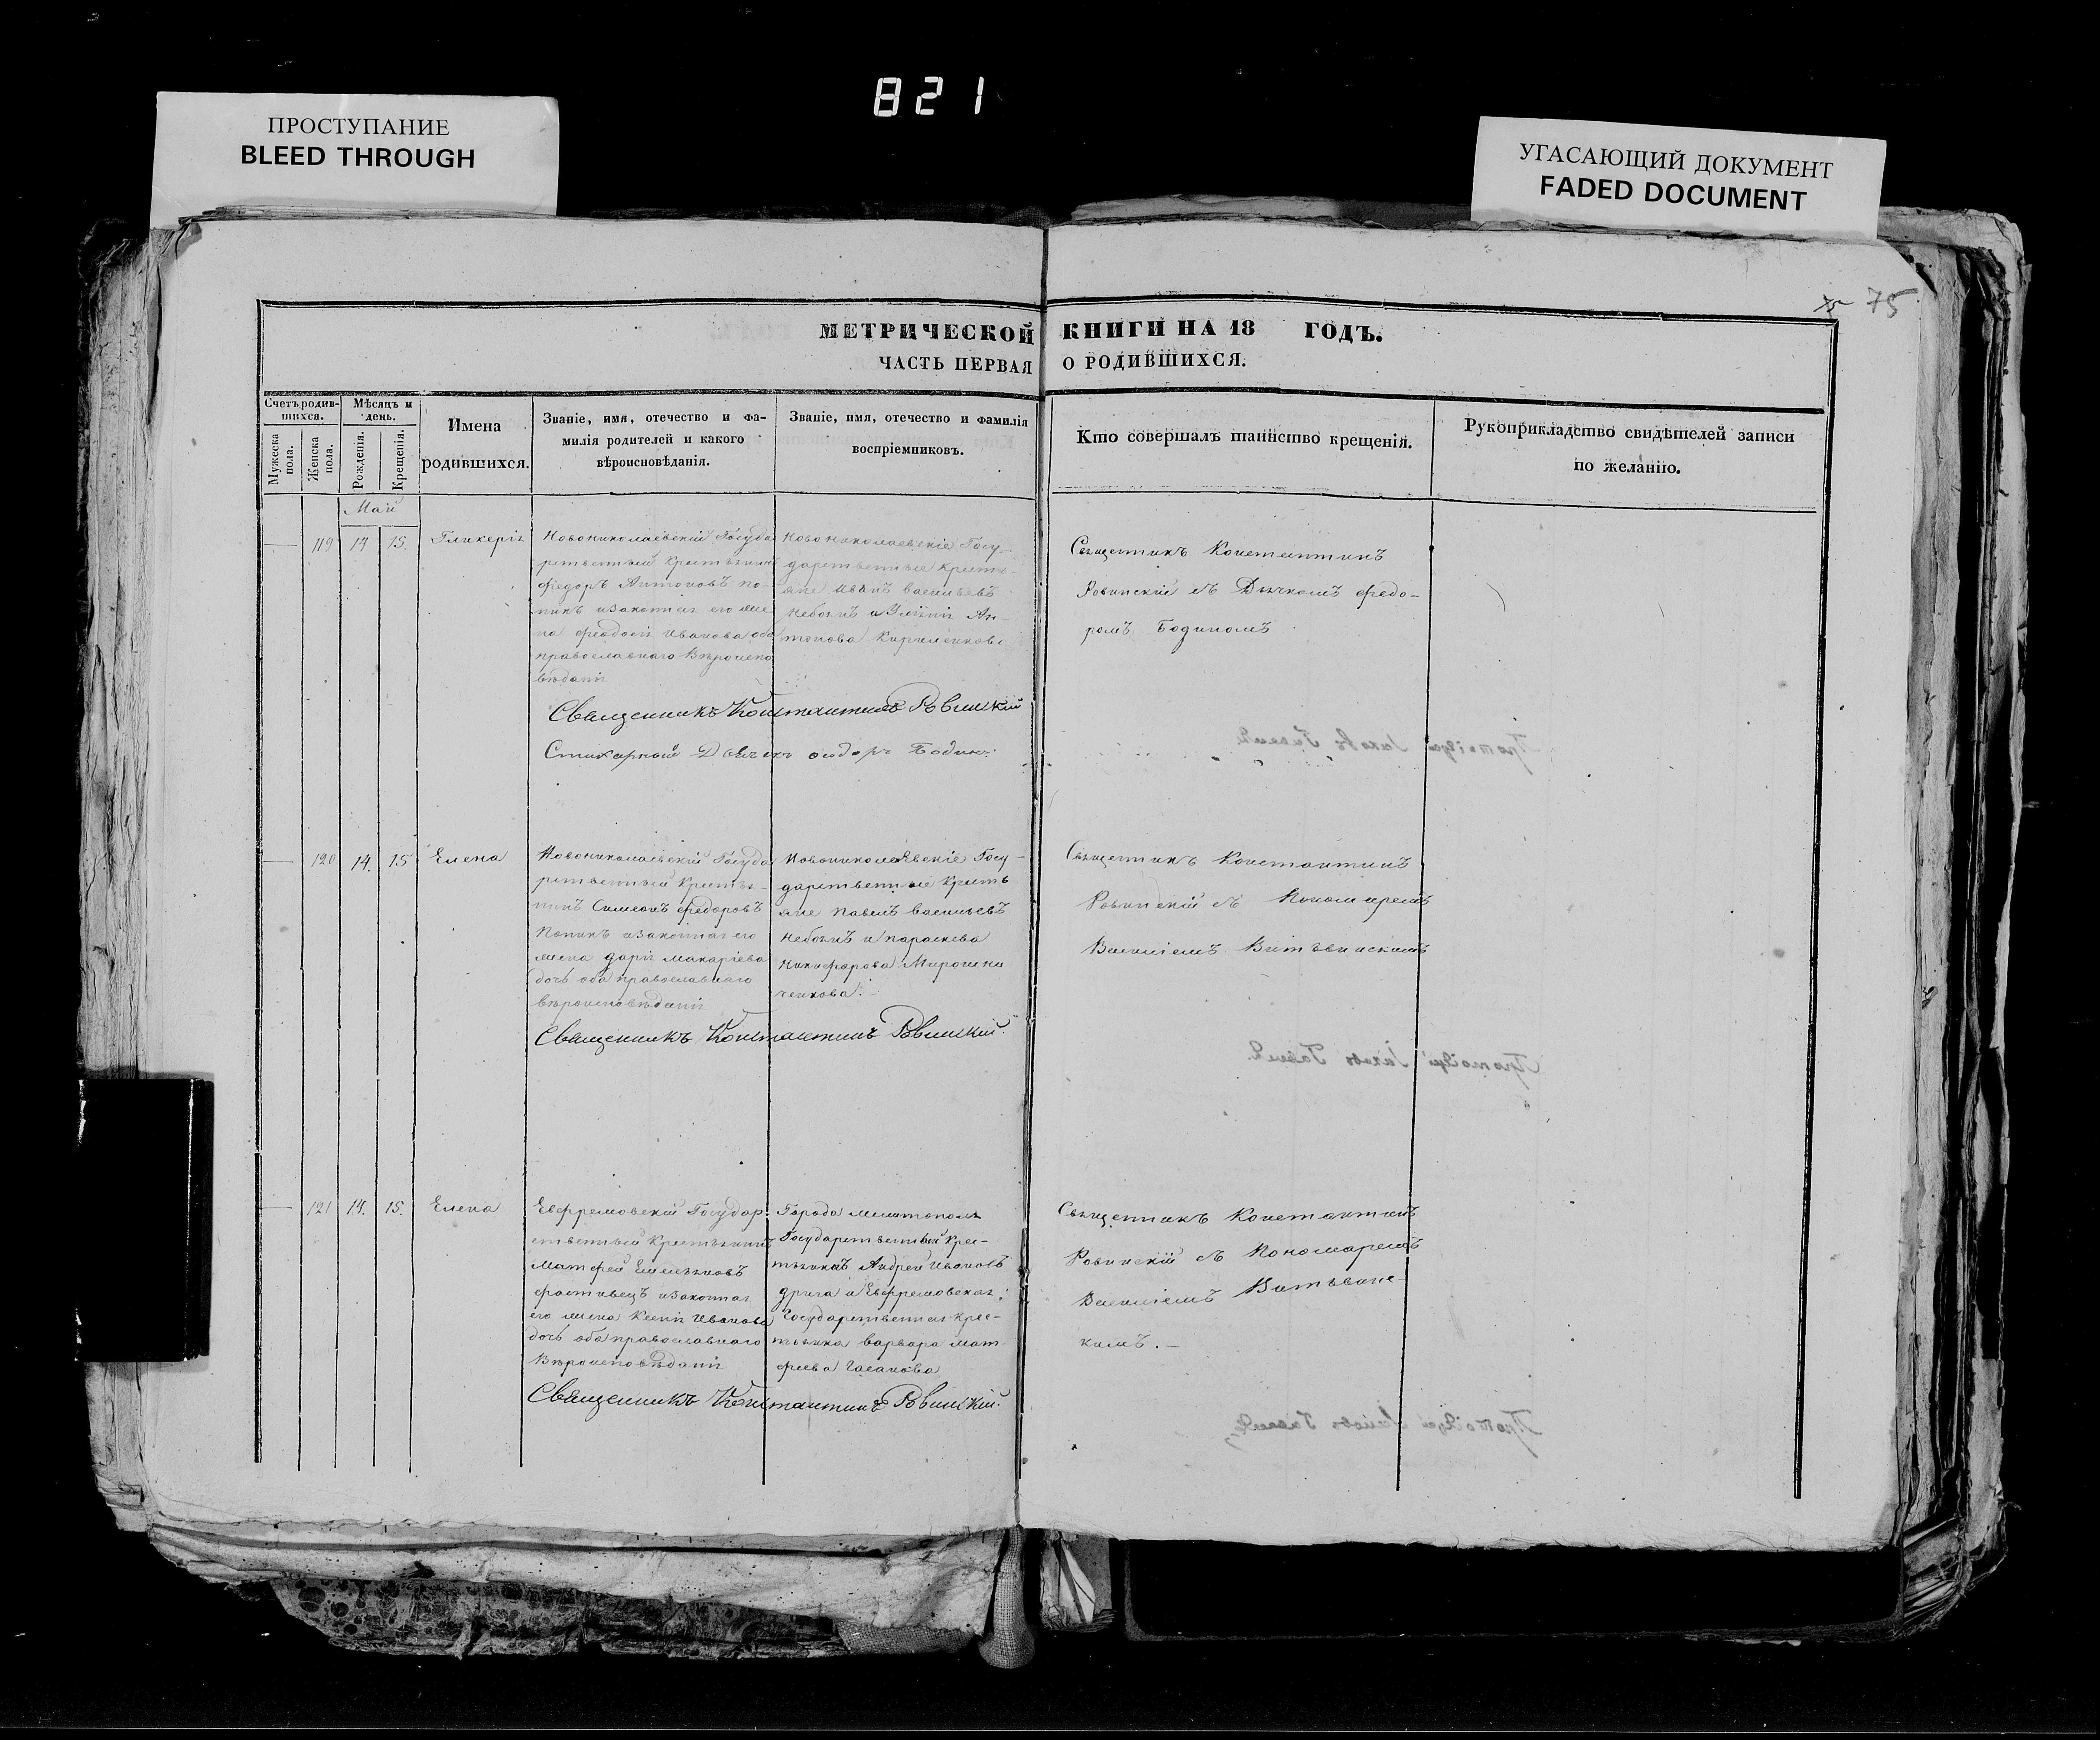 821
ПРОСТУПАНИЕ
BLEED THROUGH
УГАСАЮЩИЙ ДОКУМЕНТ
FADED DOCUMENT
75 75
МЕТРИЧЕСКОЙ КНИГИ НА 18 ГОДЪ.
ЧАСТЬ ПЕРВАЯ О РОДИВШИХСЯ.
Счетъ родив-
шихся.
Мужеска
пола.
Женска
пола.
Мѣсяцъ и
день.
Рожденія.
Крещенія.
Имена
родившихся.
Званіе, имя, отечество и фа-
милія родителей и какого
вѣроисновѣданія.
Званіе, имя, отечество и фамилія
воспріемниковъ.
Кто совершалъ таинство крещенія.
Рукоприкладство свидѣтелей записи
по желанію.
Май
119 14 15. Гликерія
Новониколаевскій Госуда
рственный Крестьянинъ
Федоръ Антоновъ По-
пикъ изаконная его же
на Феодосія Иванова оба
православнаго Вѣроиспо
вѣданія
Новониколаевскіе Госу-
дарственные Кресть-
яне Иванъ Васильевъ
Небогинъ Ан-
тонова
Священникъ Константинъ
Ровинскій съ Дьячкомъ Федо-
ромъ Бодиномъ
Священникъ Константинъ Ровинскій
Стихарный Дьячекъ Ѳеодоръ Бодин:
120 14. 15 Елена
Новониколаевскій Госуда
рственный Крестья-
нинъ Симеонъ Федоровъ
Попикъ изаконная его
жена Дарія Макаріева
дочь оба православнаго
вѣроисповѣданія
Новониколаевскіе Госу-
дарственные Кресть
яне Павелъ Васильевъ
Небогинъ и Параскева
Никифорова Мирошни
ченкова.
Священникъ Константинъ
Ровинскій съ Пономаремъ
Василіемъ
Священникъ Константинъ Ровинскій.
121 14. 15. Елена
Ефремовскій Государ
ственный Крестьянинъ
Матфей Емельяновъ
изаконная
его жена Ксенія Иванова
дочь оба православнаго
Вѣроисповѣданія
Города Мелитополя
Государственный Крес-
тьянинъ Андрей Ивановъ
Друга и Ефремовская
Государственная Крес-
тьянка Варвара Мат
феева
Священникъ Константинъ
Ровинскій съ Пономаремъ
Василіемъ
кимъ.
Священникъ Константинъ Ровинскій.